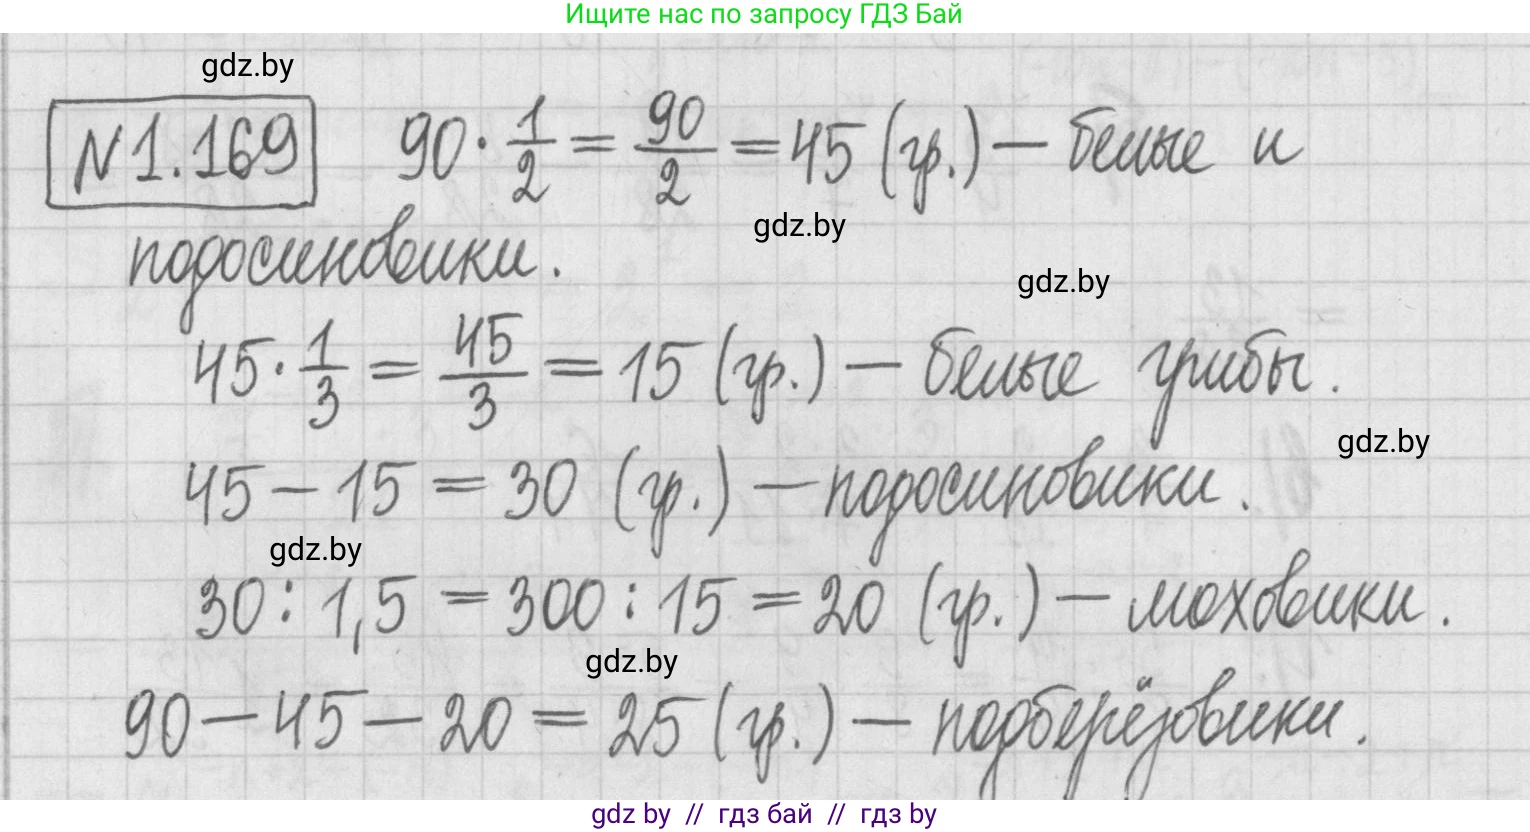 Ищите нас по запросу ГДЗ Бай
gdz.by
N1.169 90 · 1/2 = 90/2 = 45 (гр.) — белые и
gdz.by
подосиновики.
gdz.by
45 · 1/3 = 45/3 = 15 (гр.) — белые грибы.
gdz.by
45 — 15 = 30 (гр.) — подосиновики.
gdz.by
30 : 1,5 = 300 : 15 = 20 (гр.) — моховики.
gdz.by
90 — 45 — 20 = 25 (гр.) — подберёзовики.
gdz by // гдз бай // гдз by